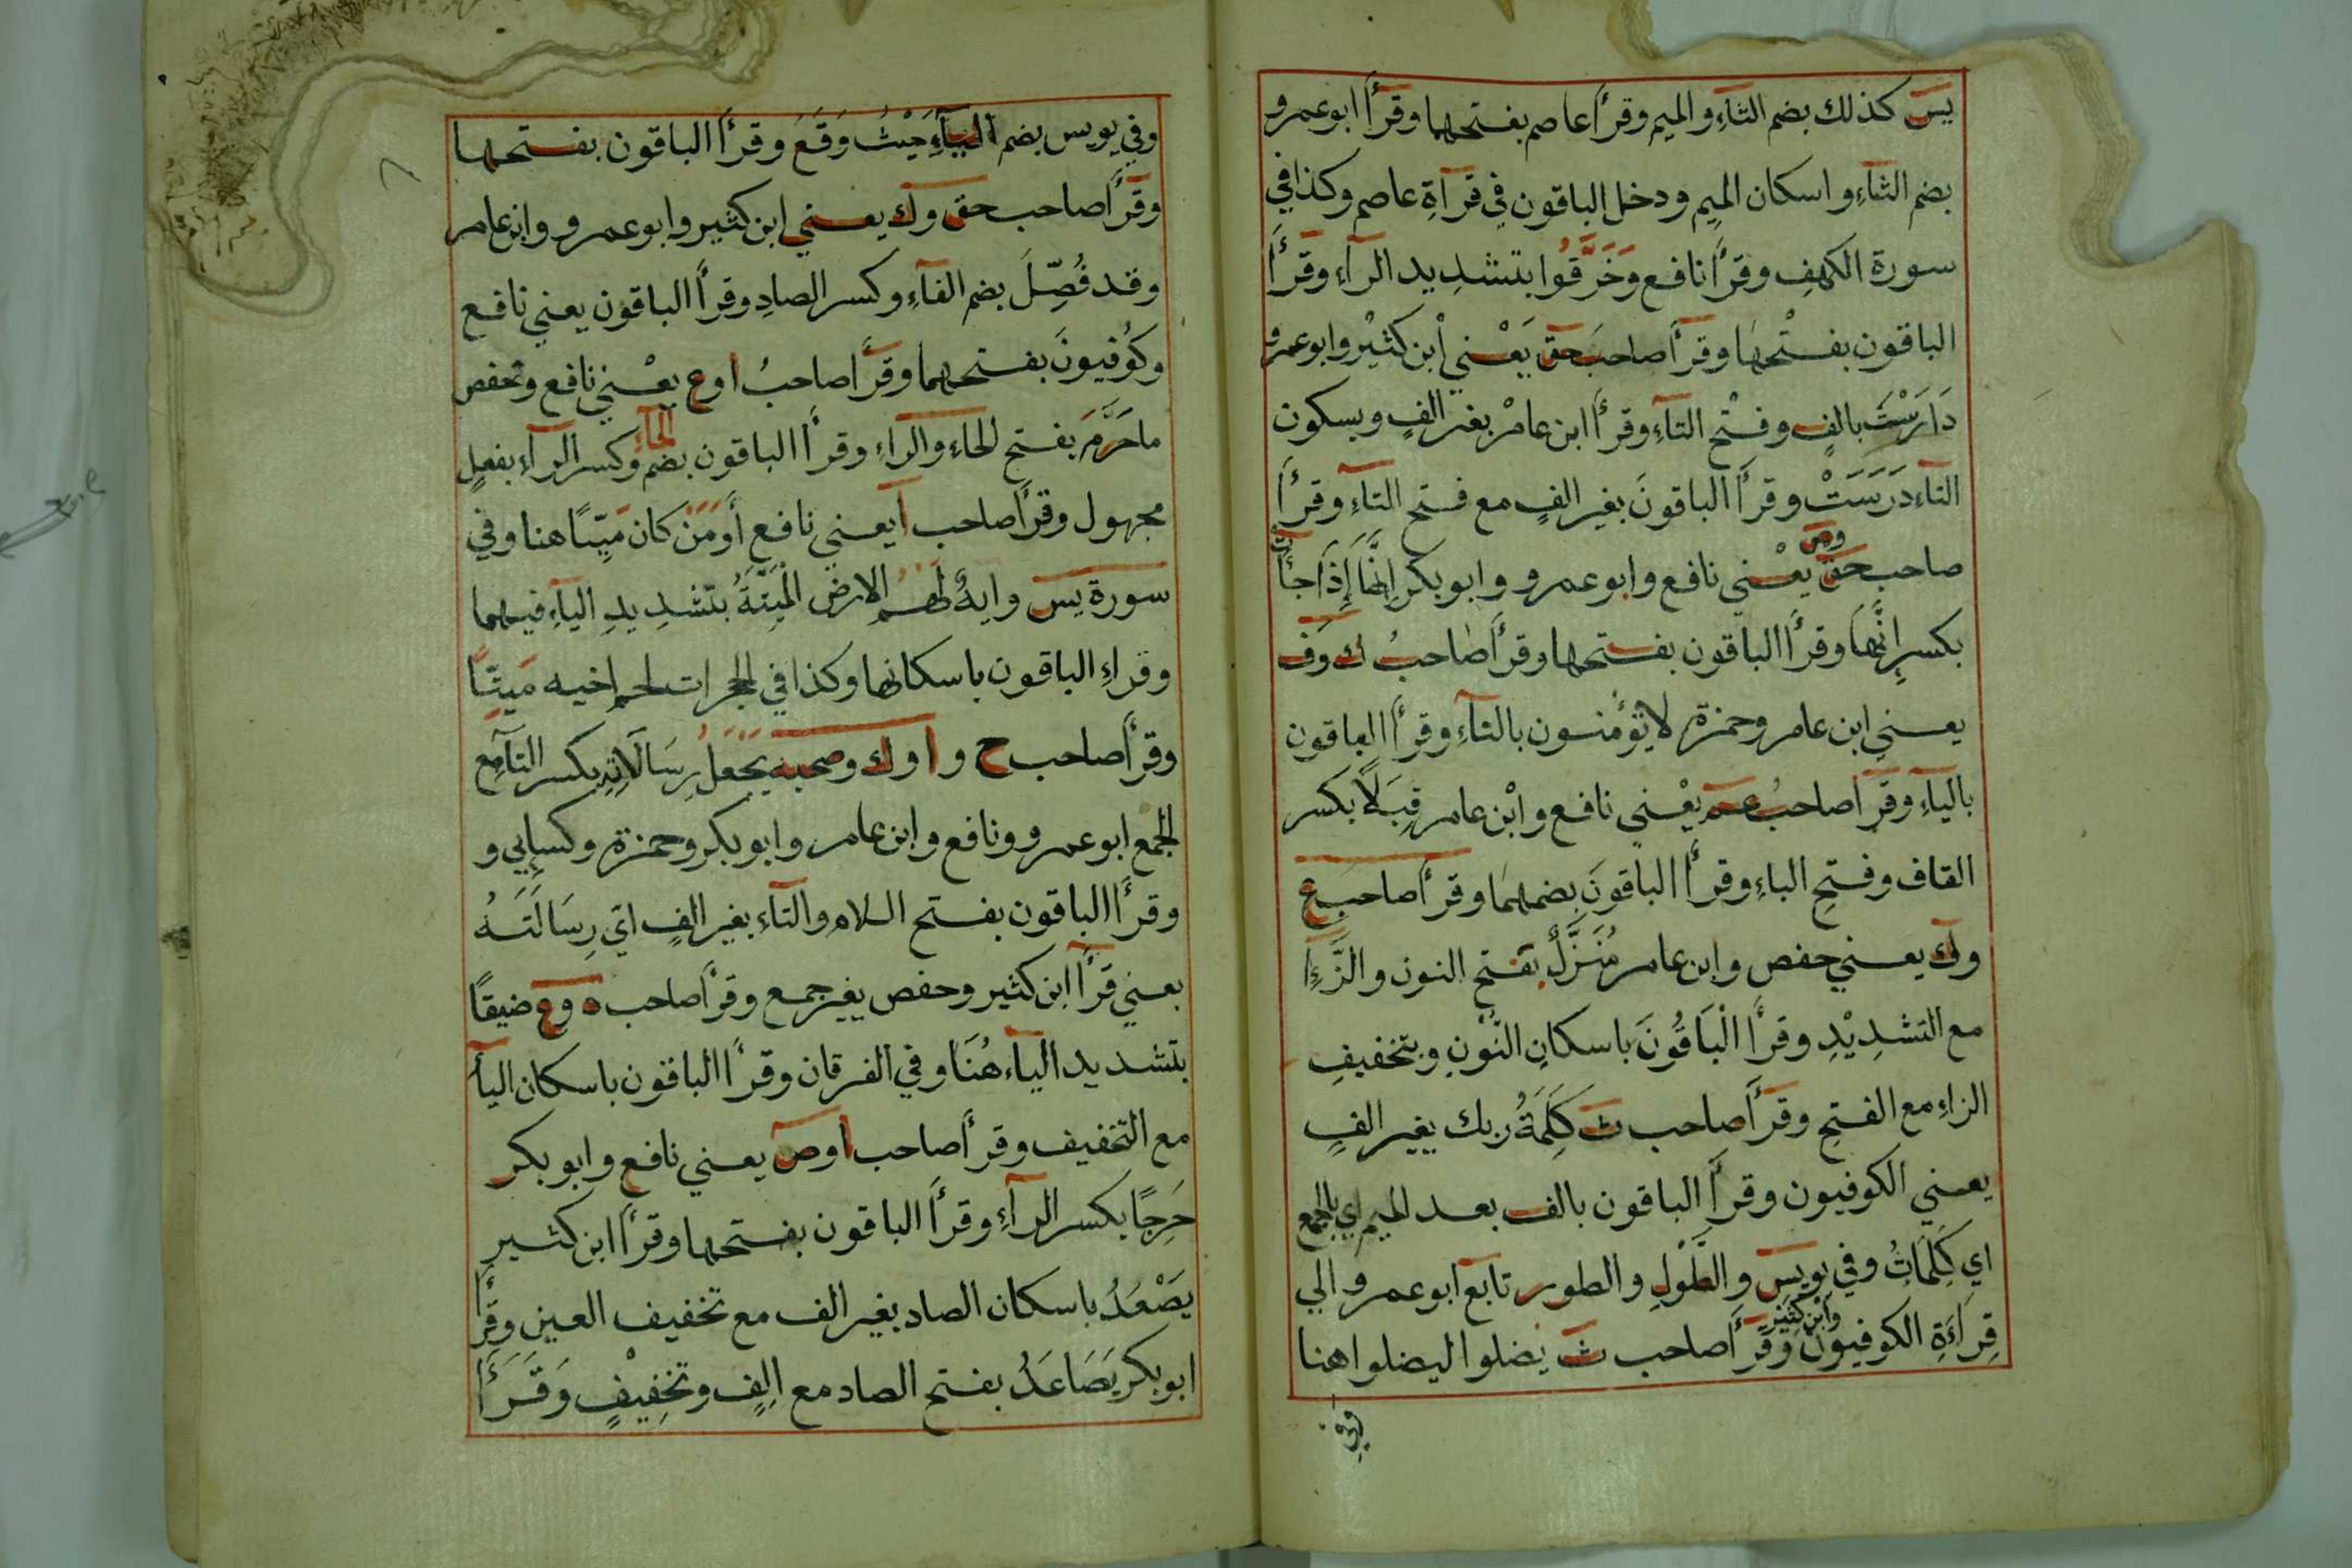 يس كذلك بضم الثآءِ والميم وقرأ عاصم بفتحهما وقرأ ابوعمرو
بضم الثآءِ واسكان الميم ودخل الباقون في قرآةِ عاصم وكذا في
سورة الكهف وقرأ نافع وَخَرَّقُوا بتشديد الرآءِ وقرأ
الباقون بفتْحها وقرأ صاحبَ حق يَعْني اْبن كثيْر وابوعمرو
دَارَسْتَ بالفٍ وفتْح التآءِ وقرأ ابن عامرْ بغير الفٍ وبسكون
التآء دَرَسَتْ وقرأ الباقونَ بغير الفٍ مع فتح التآءِ وقرأ
صاحب حق وص يعْني نافع وابوعمرو وابوبكر اِنَّهَا إِذَا جآأت
بكسرِ اِنَّهَا وقرأ الباقون بفتحها وقرأ صاحبُ ك وَف
يعني ابن عامر وحمزة لا تؤمنون بالتآءِ وقرأ الباقون
باليآءِ وقرأ صاحبُ عم يعْني نافع وابْن عامر قِبَلًا بكسر
القاف وفتحِ الباءِ وقرأ الباقونَ بضمهمَا وقرأ صاحبَ ع
وك يعني حفص وابن عامر مُنَزَّلٌ بفتح النون والزَّءِا
مع التشدِيْدِ وقرأ الْبَاقُونَ باسكانِ النّوْنِ وبتخفيفِ
الزاءِ مع الفتحِ وقرأ صاحب ث كَلِمَةُ ربك بغير الفٍ
يعني الكوفيون وقرأ الباقون بالف بعد الميم اي بالجمع
اي كَلِمَاتُ وفي يويس والطَّوْلِ والطور تابع ابوعمرو الي
قِرَاءَةِ الكوفيون وَابْن كثيْر وقرأ صاحب ث يضلوا ليضلوا هنا
وفي
وفي يويس بضم اليآءِ حَيْثُ وَقَعَ وقرأ الباقون بفتحها
وقرأ صاحب حق وك يعني ابن كثير وابوعمرو وابن عامر
وقد فُصِّلَ بضم الفآءِ وكسر الصادِ وقرأ الباقون يعني نافع
وكُوفيونَ بفتحهما وقرأ صاحبُ ا وع يعْني نافع وحفص
ما حَرَّمَ بفتح الحاءِ والراءِ وقرأ الباقون بضم الحآءِ وكسر الرآءِ بفعلٍ
مجهول وقرأ صاحب آ يعني نافع أَوَمَنْ كان مَيِّتًا هنا وفي
سورة يس وايةٌ لهم الارض الْمَيِّتَةُ بتشديدِ اليآءِ فيهما
وقراءِ الباقون باسكانها وكذا في الحجرات لحم اخيه مَيتًا
وقرأ صاحب ح وا وك وصحبه يَجْعَلُ رِسَالَاتِهِ بكسر التآءِ مع
الجمع ابوعمرو ونافع وابن عامر وابوبكر وحمزة وكسايي و
وقرأ الباقون بفتح اللام والتآءِ بغير الفٍ اي رِسَالَتَهُ
يعني قرآ ابن كثير وحفص بغير جمع وقرأ صاحب ه وع ضيقًا
بتشديد اليآء هُنَا وفي الفرقان وقرأ الباقون باسكان اليآ
مع التخفيف وقرأ صاحب ا وص يعني نافع وابوبكر
حَرِجًا بكسر الرآءِ وقرأَ الباقون بفتحها وقرأ ابن كثير
يَصْعَدُ باسكان الصاد بغير الف مع تخفيف العين وقرأ
ابوبكر يَصَاعَدُ بفتح الصاد مع اِلفٍ وتخِفيْفٍ وَقَرَأَ